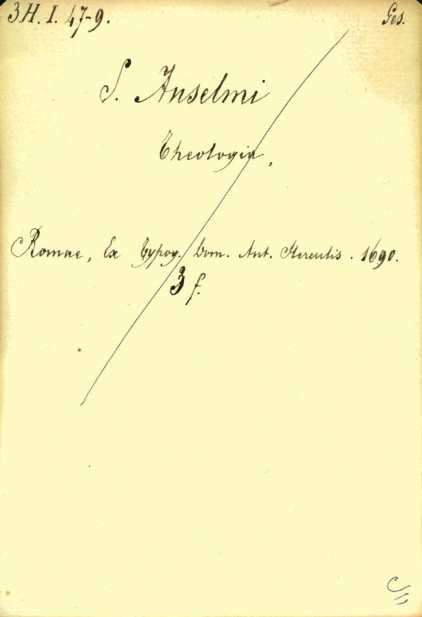 3H. I. 47-9. Ges.
S. Anselmi
Theologia,
Romae, Ex Typog. Dom. Ant. Herculis. 1690.
3 f.